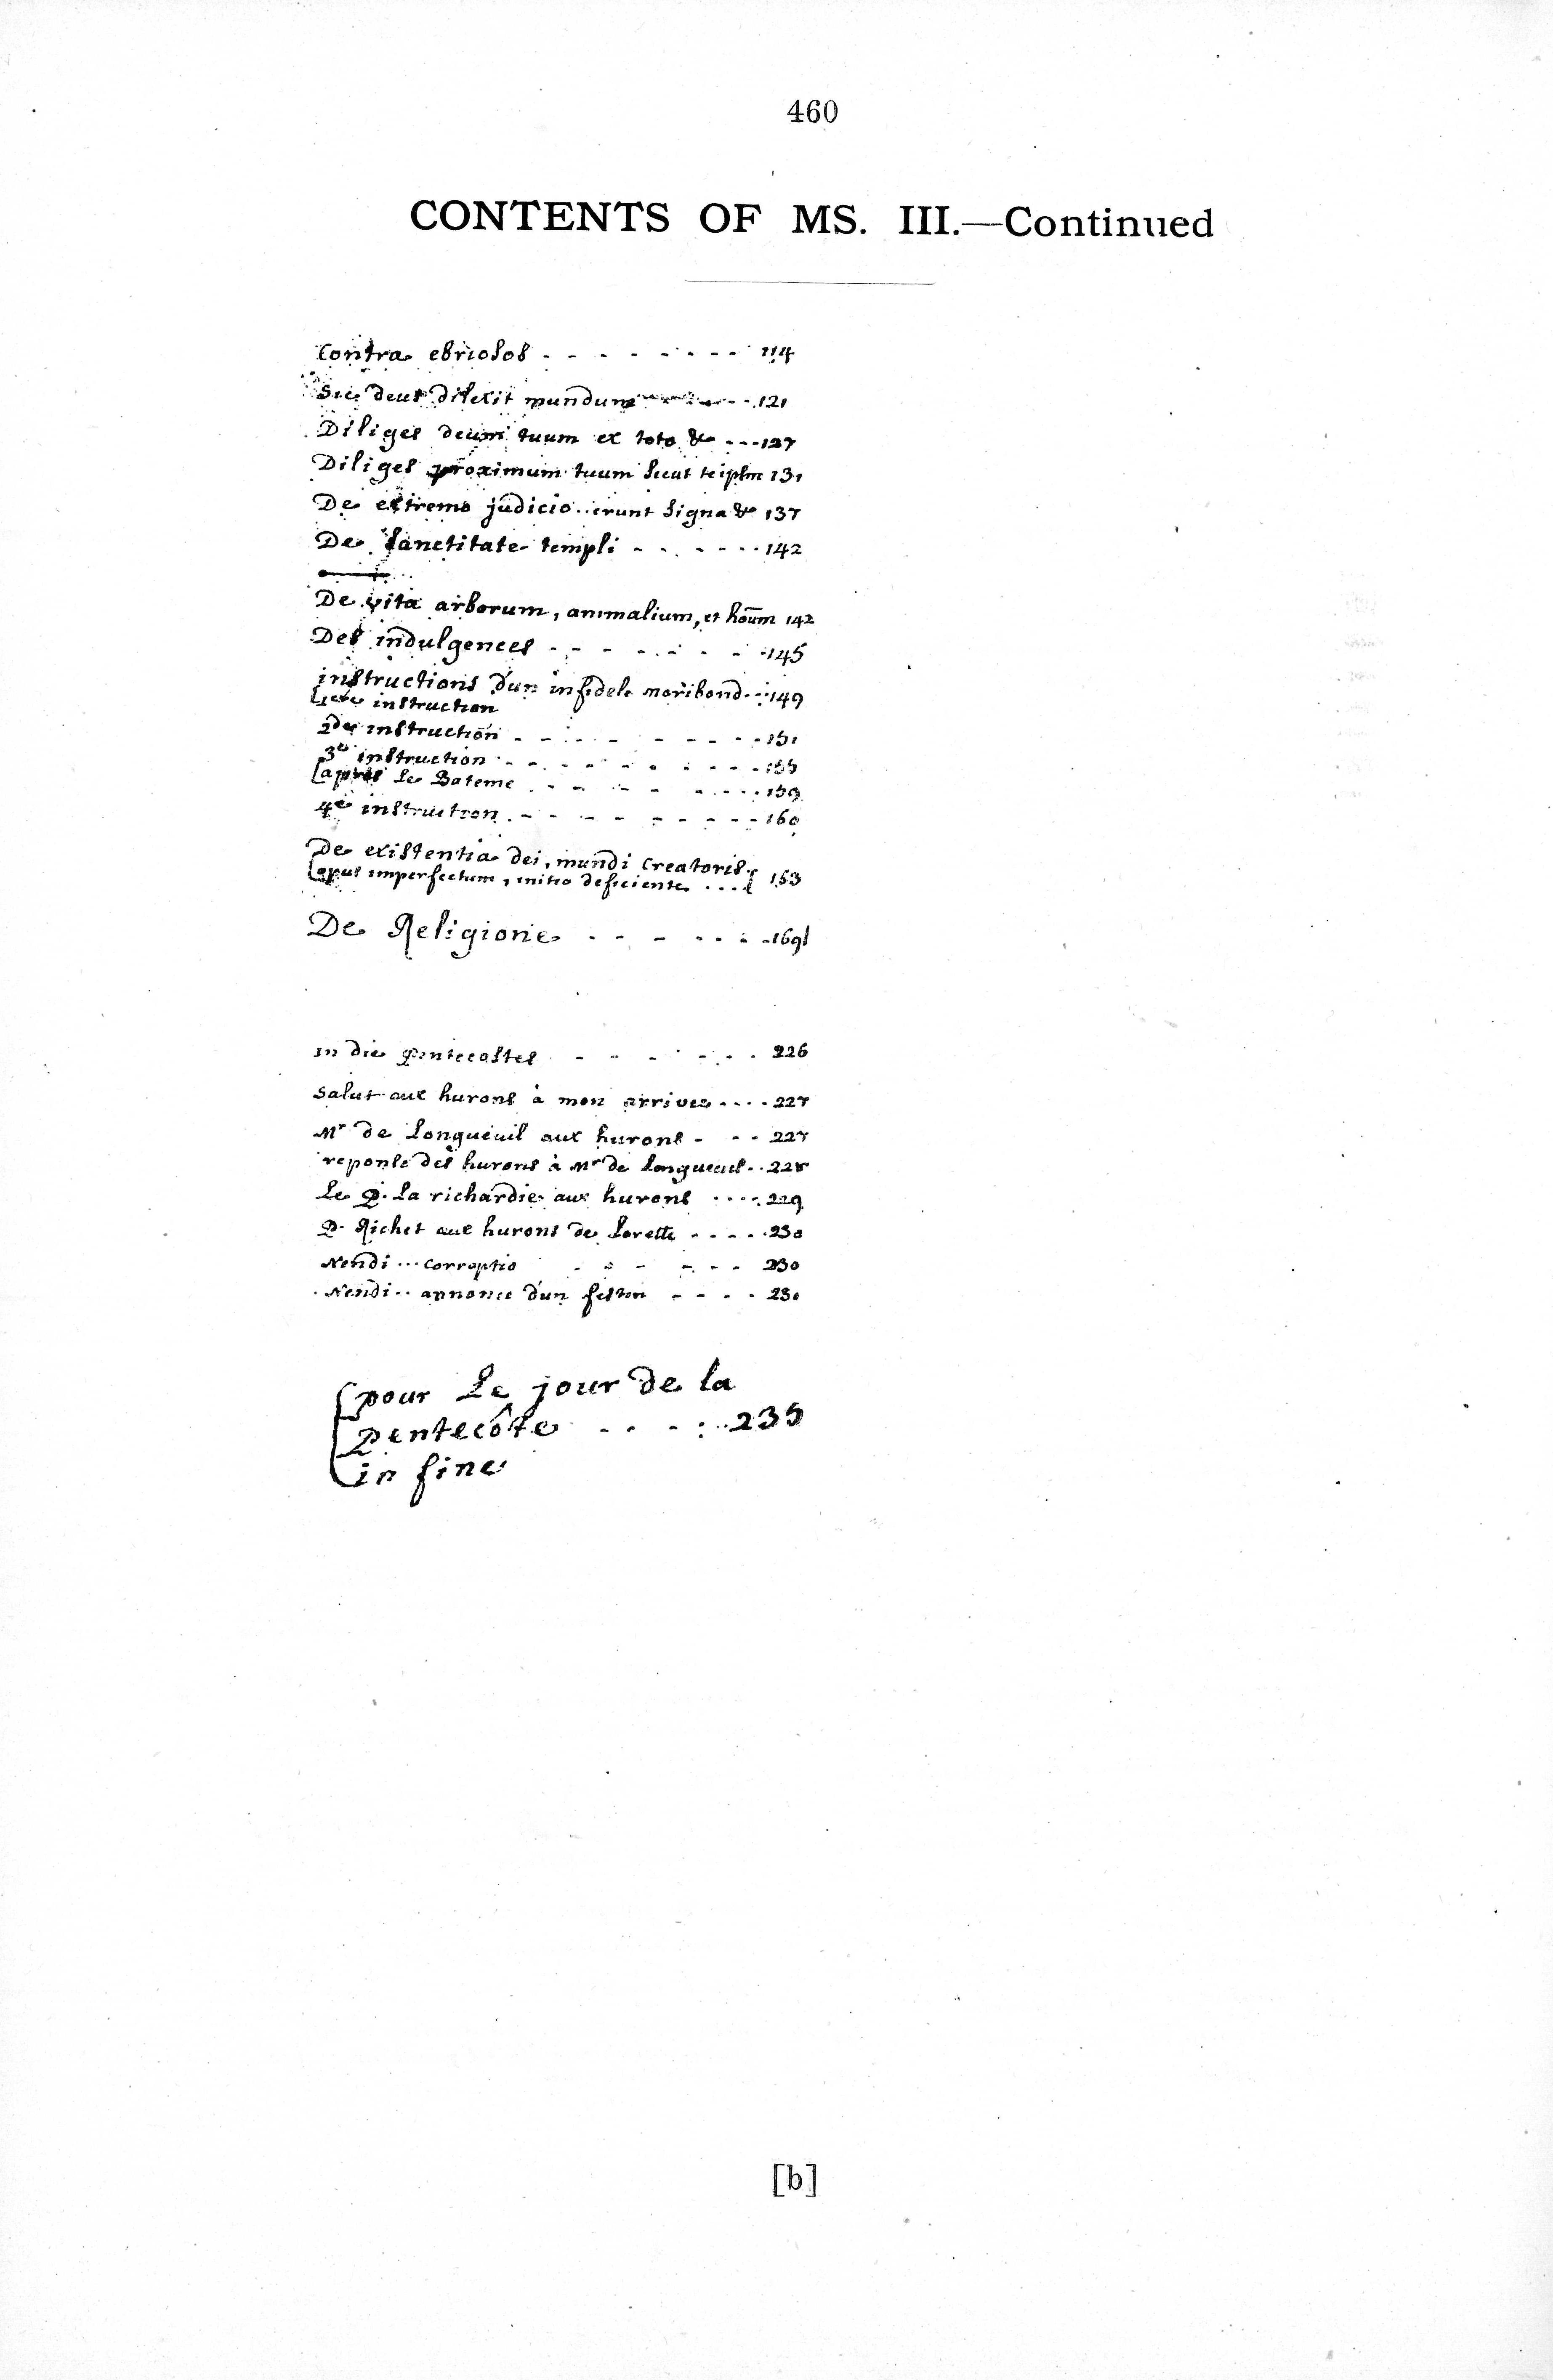 460
CONTENTS OF MS. III.—Continued
Contra ebriosos - - - - - - - - 114
Sic deus dilexit mundum - - 121
Diliges deum tuum ex toto &c - - - 127
Diliges proximum tuum sicut teipsm 131
De extremo judicio .. erunt signa &c 137
De sanctitate templi - - - - - - 142
De vita arborum, animalium, et hoūm 142
Des indulgences - - - - - - - 145
instructions d'un infidele moribond - - 149
[1ere instruction
2de instruction - - - - - - - - 151
3e instruction - - - - - - - - - 155
[après le Bateme - - - - - - - - 159
4e instruction - - - - - - - - 160
De existentia dei, mundi creatoris
[opus imperfectum, initio deficiente . . . . ] 163
De Religione - - - - - - - 169
in die pentecostes - - - - - - 226
Salut aux hurons à mon arrivee - - - - 227
Mr de Longueuil aux hurons - - - 227
reponse des hurons à Mr de Longueuil - - 228
Le P. la richardie aux hurons - - - - 229
P. Richer aux hurons de Lorette - - - - - 230
Nendi ... corruptio - - - - - - 230
Nendi .. annonce d'un festin - - - - 230
[pour Le jour de la
pentecôte - - - - . . 235
in fine
[b]